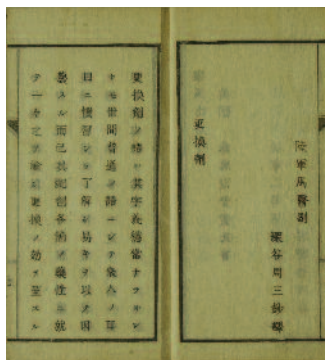 陸軍馬醫副
深谷周三鈔譯
更換劑
更換劑ノ稱ハ其字義穩當ナラ
モ世間普通ノ語ニシテ ノ耳
目ニ慣習シ 了解シ易キヲ以テ因
襲スル而已其 劑各 ノ藥性ニ就
テ一々之ヲ論 更換ノ効ヲ呈スル